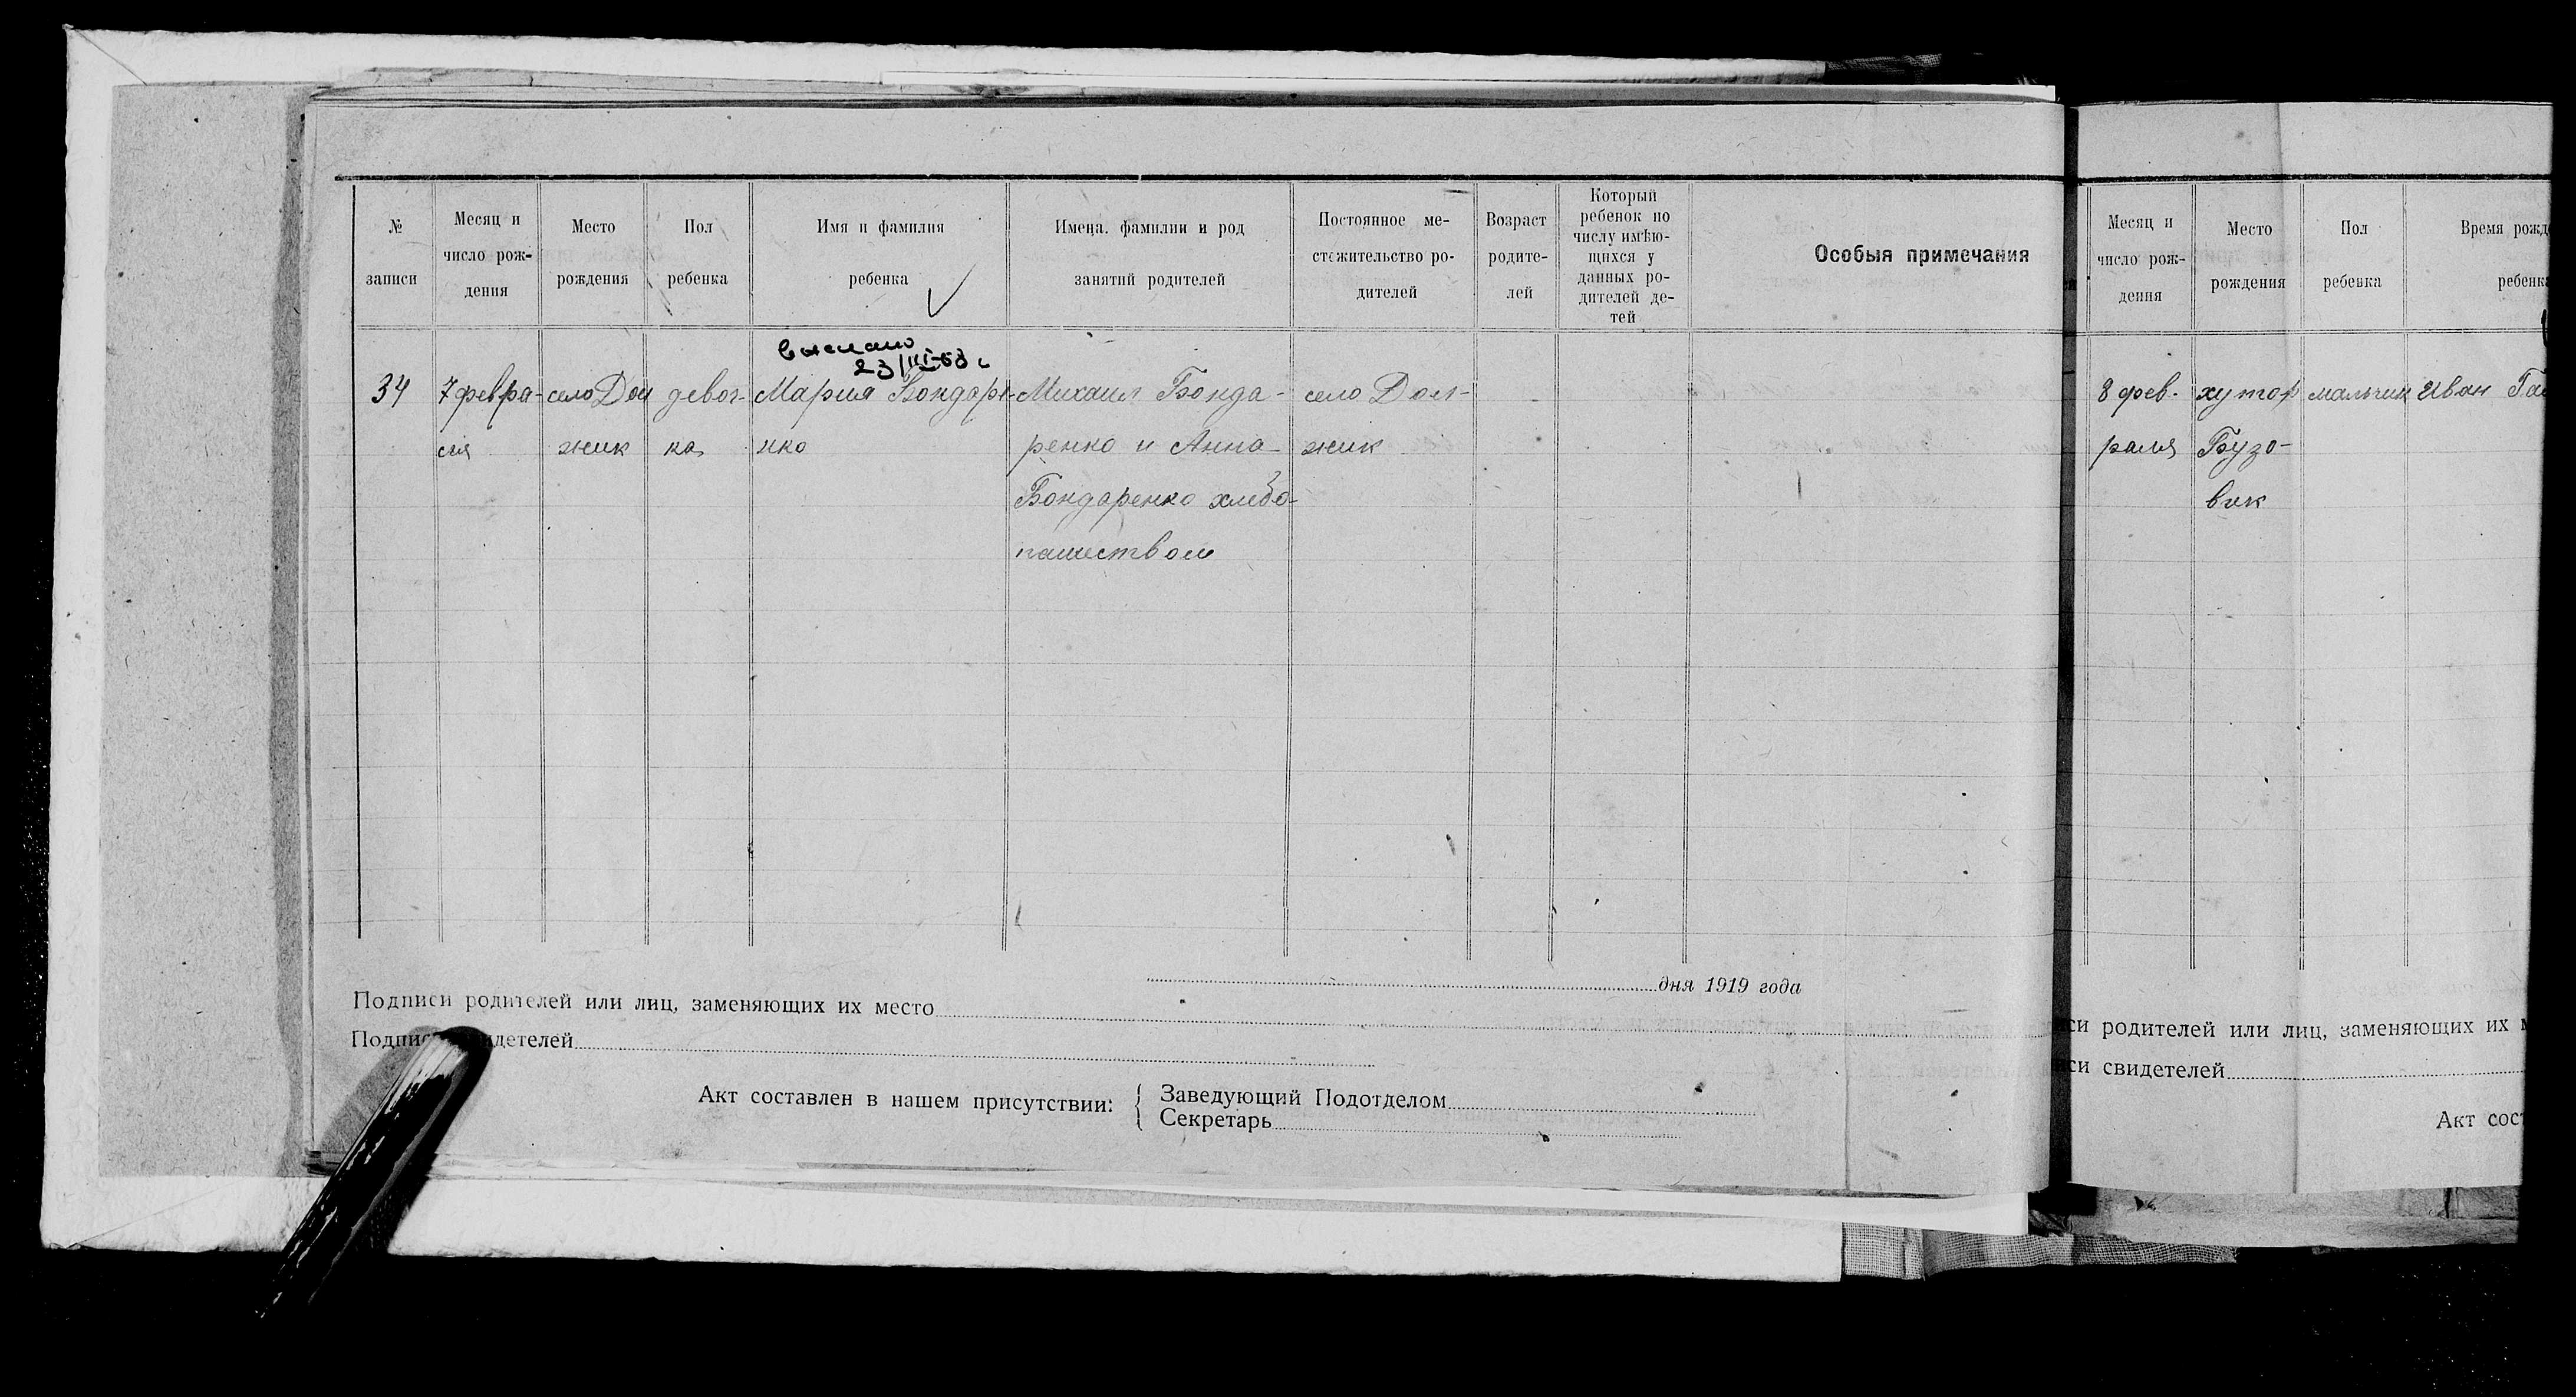 № записи
Месяц и число рождения
Место рождения
Пол ребенка
Имя и фамилия ребенка
Имена, фамилии и род занятий родителей
Постоянное местожительство родителей
Возраст родителей
Который ребенок по числу имѣющихся у данных родителей детей
Особыя примечания
23/III-63 г
34 7 февра- село Дол девоч- Мария Бондаре- Михаил Бонда- село Дол-
ля жик ка нко ренко и Анна жик
Бондаренко хлебо-
пашеством
дня 1919 года
Подписи родителей или лиц, заменяющих их место
Подписи свидетелей
Акт составлен в нашем присутствии:
Заведующий Подотделом
Секретарь
Месяц и число рождения
Место рождения
Пол ребенка
Время рожд
ребенк
8 фев- хутор мальчик Иван
раля Бузо-
вик
си родителей или лиц, заменяющих их
си свидетелей
Акт сост